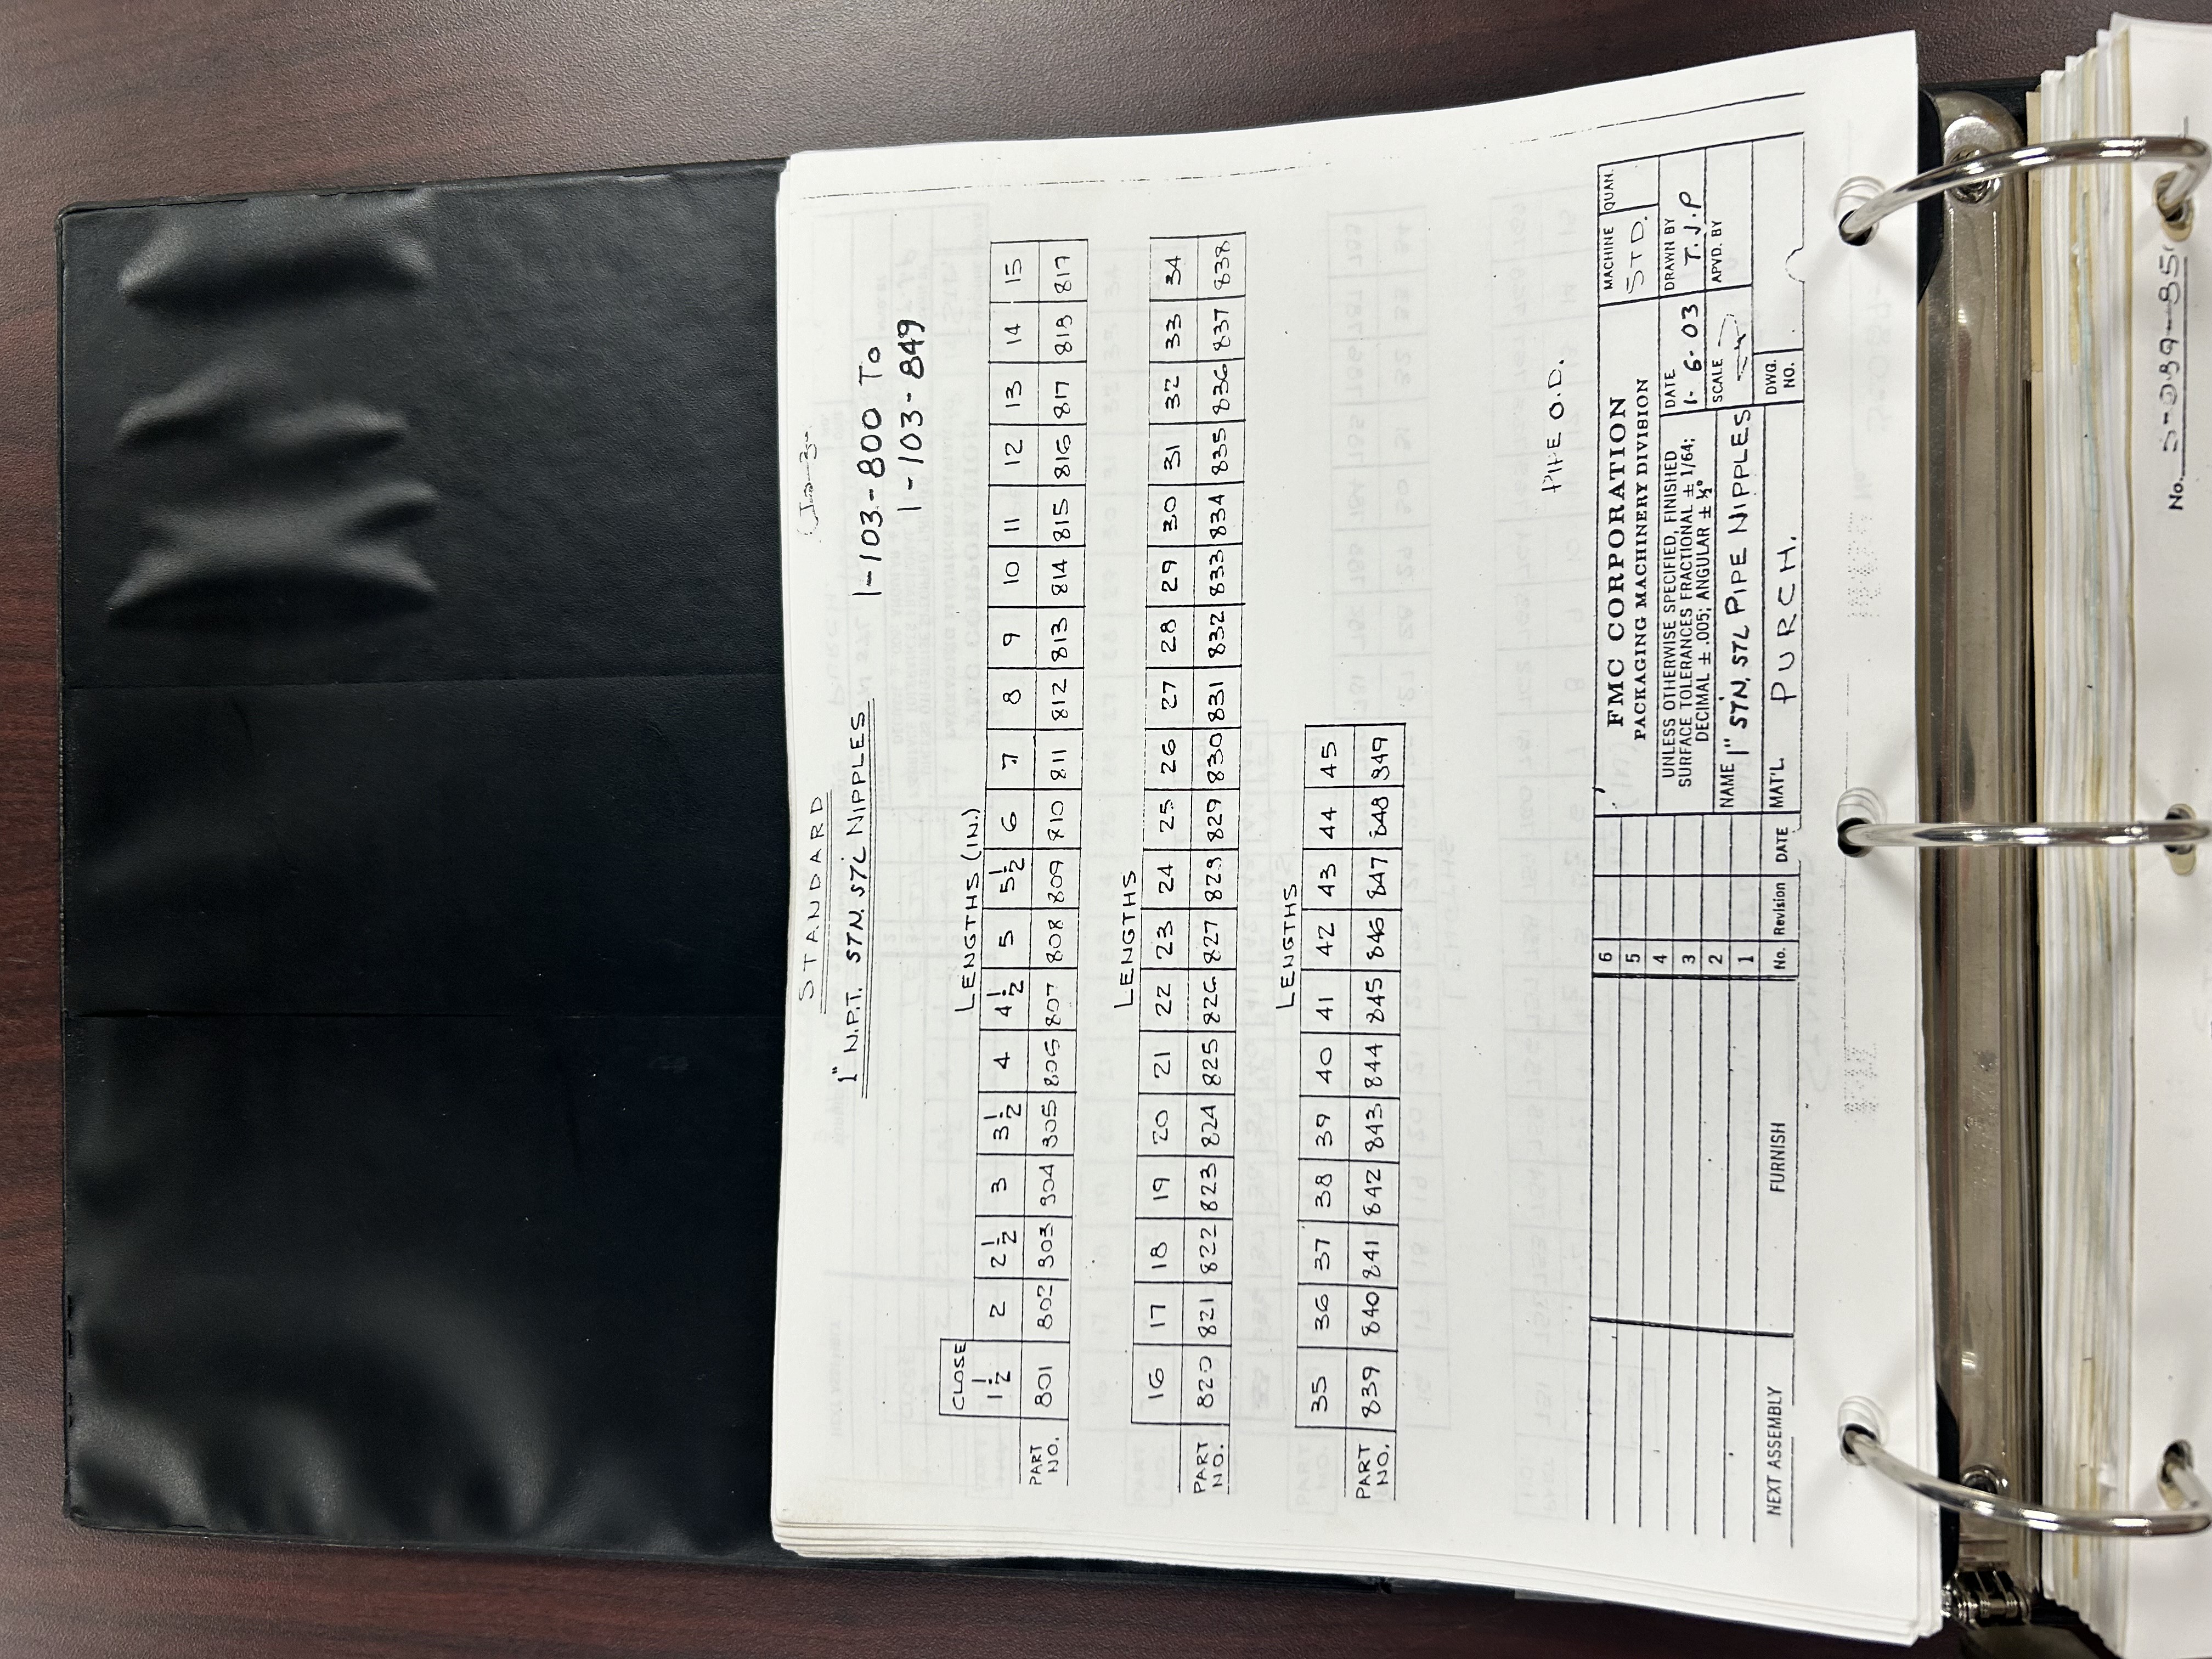 STANDARD
1" N.P.T. STN. STL NIPPLES
1-103-800 To
1-103-849
CLOSE
LENGTHS (IN.)
1 1/2 2 2 1/2 3 3 1/2 4 4 1/2 5 5 1/2 6 7 8 9 10 11 12 13 14 15
PART NO. 801 802 803 804 805 806 807 808 809 810 811 812 813 814 815 816 817 818 819
LENGTHS
16 17 18 19 20 21 22 23 24 25 26 27 28 29 30 31 32 33 34
PART NO. 820 821 822 823 824 825 826 827 828 829 830 831 832 833 834 835 836 837 838
LENGTHS
35 36 37 38 39 40 41 42 43 44 45
PART NO. 839 840 841 842 843 844 845 846 847 848 849
PIPE O.D.
6
5
4
3
2
1
NEXT ASSEMBLY FURNISH No. Revision DATE
FMC CORPORATION
PACKAGING MACHINERY DIVISION
MACHINE QUAN.
STD.
UNLESS OTHERWISE SPECIFIED, FINISHED
SURFACE TOLERANCES FRACTIONAL ± 1/64;
DECIMAL ± .005; ANGULAR ± ½°
DATE
1-6-03
DRAWN BY
T.J.P
NAME 1" STN. STL PIPE NIPPLES
SCALE
APVD. BY
MAT'L. PURCH.
DWG.
NO.
No.